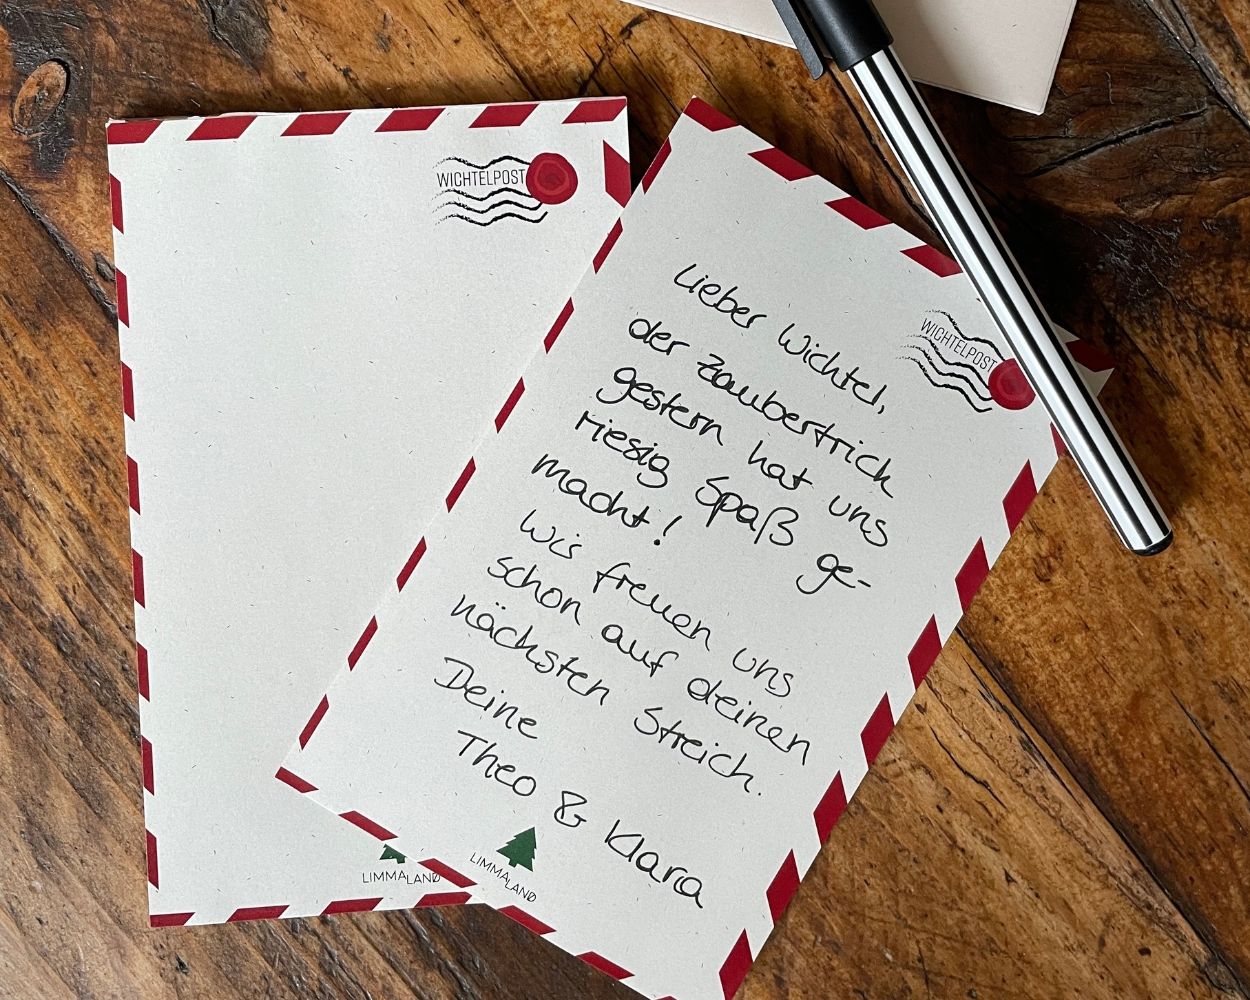 WICHTELPOST
LIMMALAND
WICHTELPOST
Lieber Wichtel,
der Zaubertrick
gestern hat uns
riesig Spaß ge-
macht!
Wir freuen uns
schon auf deinen
nächsten Streich.
Deine
Theo & Klara
LIMMALAND